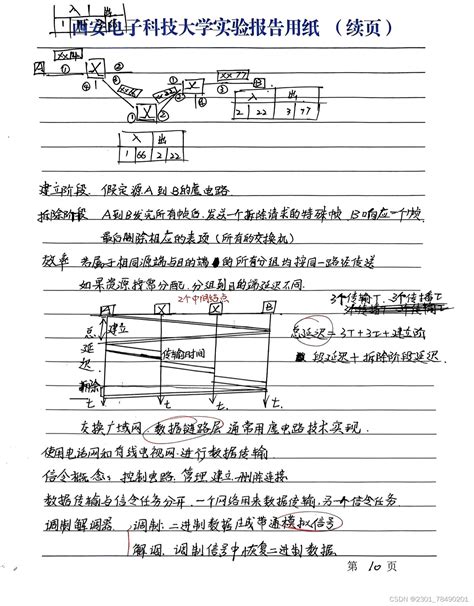 西安电子科技大学实验报告用纸（续页）
入 | 出
A xx14 ① X ② xx66 ① X ② xx22 ① X ② xx77 B
入 | 出
2 | 22 | 3 | 77
入 | 出
1 | 66 | 2 | 22
建立阶段. 假定源A到B的虚电路
拆除阶段 A到B发完所有帧后,发送一个拆除请求的特殊帧 B响应一个帧
最后删除相应的表项(所有的交换机)
效率 若属于相同源端与目的端的所有分组均按同一路径传送
如果资源按需分配,分组到目的端延迟不同.
2个中间结点
A X X B
3个传输T. 3个传播τ
总延迟 建立
总延迟=3T+3τ+建立阶
传输时间
段延迟+拆除阶段延迟.
拆除
t. t. t. t.
交换广域网. 数据链路层 通常用虚电路技术实现.
使用电话网和有线电视网进行数据传输
信令概念: 控制电路. 管理 建立 删除连接
数据传输与信令任务分开. 一个网络用来数据传输,另一个信令任务.
调制解调器. 调制: 二进制数据生成带通模拟信号
解调. 调制信号中恢复二进制数据.
第 10 页
CSDN @2301_78490201